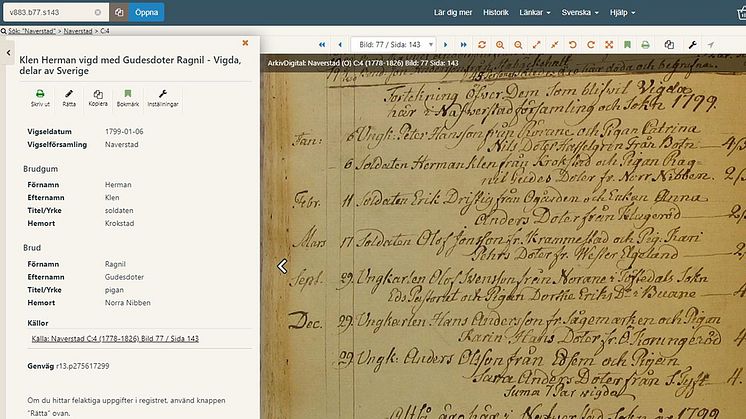 v883.b77.s143
Öppna
Lär dig mer
Historik
Länkar
Svenska
Hjälp
Sök: "Naverstad" > Naverstad > C:4
Klen Herman vigd med Gudesdoter Ragnil - Vigda,
delar av Sverige
Skriv ut
Rätta
Kopiera
Bokmärk
Inställningar
Vigseldatum 1799-01-06
Vigselförsamling Naverstad
Brudgum
Förnamn Herman
Efternamn Klen
Titel/Yrke soldaten
Hemort Krokstad
Brud
Förnamn Ragnil
Efternamn Gudesdoter
Titel/Yrke pigan
Hemort Norra Nibben
Källor
Källa: Naverstad C:4 (1778-1826) Bild 77 / Sida 143
Genväg r13.p275617299
Om du hittar felaktiga uppgifter i registret, använd knappen
"Rätta" ovan.
Bild: 77 / Sida: 143
ArkivDigital: Naverstad (O) C:4 (1778-1826) Bild: 77 Sida: 143
Förtekning öfver Dem som blifvit Vigda
här i Nafverstad församling och Sokn 1799.
Jan: 6 Ungk: Peter Hansson från Rörane och Pigan Catrina
Nils Doter Hasselgren från Botn
6 Soldaten Herman Klen från Krokstad och Pigan Rag-
nil Gudes Doter fr. Norr Nibben.
Febr. 11 Soldaten Erik Driftig från Ogården och Enkan Anna
Anders Doter från
Mars 17 Soldaten Olof Jonsson fr. Krammestad och Pig. Kari
Pehrs Doter fr. Wester
Sept. 29 Ungkarlen Olof Svensson från Norane i Töftedals Sokn
och Pigan Dorthe Eriks Dr i Buane
Dec. 29 Ungkarlen Hans Andersson fr. Sågemarken och Pigan
Karin Hans Doter fr. O. Korungeröd
29 Ungk: Anders Olsson från Edsem och Pigan
Sara Anders Doter från S. Tyft
Suma 7 Par vigda